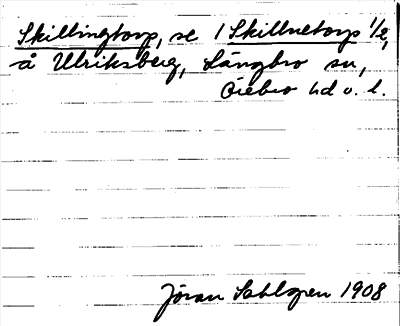 Skillingtorp, se 1 Skillnetorp 1/2,
å Ulriksberg, Längbro sn,
Örebro hd o. l.
Jöran Sahlgren 1908